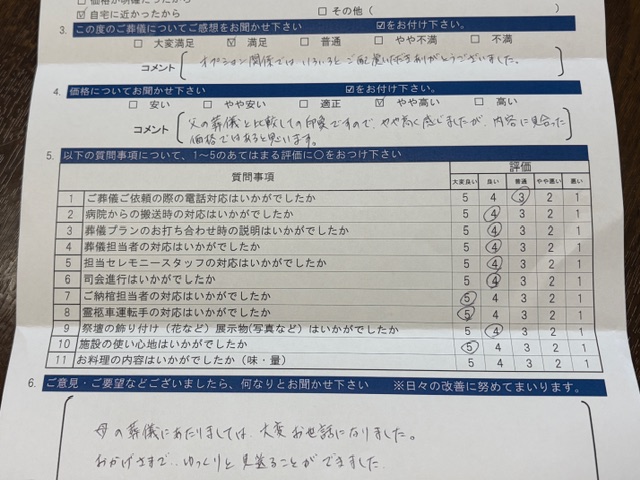 価格が明確だったから
☑ 自宅に近かったから □ その他（ ）
3. この度のご葬儀についてご感想をお聞かせ下さい ☑をお付け下さい。
□ 大変満足 ☑ 満足 □ 普通 □ やや不満 □ 不満
コメント オプション関係では、いろいろとご配慮いただき有りがとうございました。
4. 価格についてお聞かせ下さい ☑をお付け下さい。
□ 安い □ やや安い □ 適正 ☑ やや高い □ 高い
コメント 父の葬儀と比較しての印象ですので、やや高く感じましたが、内容に見合った
価格ではあると思います。
5. 以下の質問事項について、1～5のあてはまる評価に○をおつけ下さい
質問事項 評価
大変良い 良い 普通 やや悪い 悪い
1 ご葬儀ご依頼の際の電話対応はいかがでしたか 5 4 3 2 1
2 病院からの搬送時の対応はいかがでしたか 5 4 3 2 1
3 葬儀プランのお打ち合わせ時の説明はいかがでしたか 5 4 3 2 1
4 葬儀担当者の対応はいかがでしたか 5 4 3 2 1
5 担当セレモニースタッフの対応はいかがでしたか 5 4 3 2 1
6 司会進行はいかがでしたか 5 4 3 2 1
7 ご納棺担当者の対応はいかがでしたか 5 4 3 2 1
8 霊柩車運転手の対応はいかがでしたか 5 4 3 2 1
9 祭壇の飾り付け（花など）展示物(写真など）はいかがでしたか 5 4 3 2 1
10 施設の使い心地はいかがでしたか 5 4 3 2 1
11 お料理の内容はいかがでしたか（味・量） 5 4 3 2 1
6. ご意見・ご要望などございましたら、何なりとお聞かせ下さい ※日々の改善に努めてまいります。
母の葬儀にあたりましては、大変お世話になりました。
おかげさまで、ゆっくりと見送ることができました